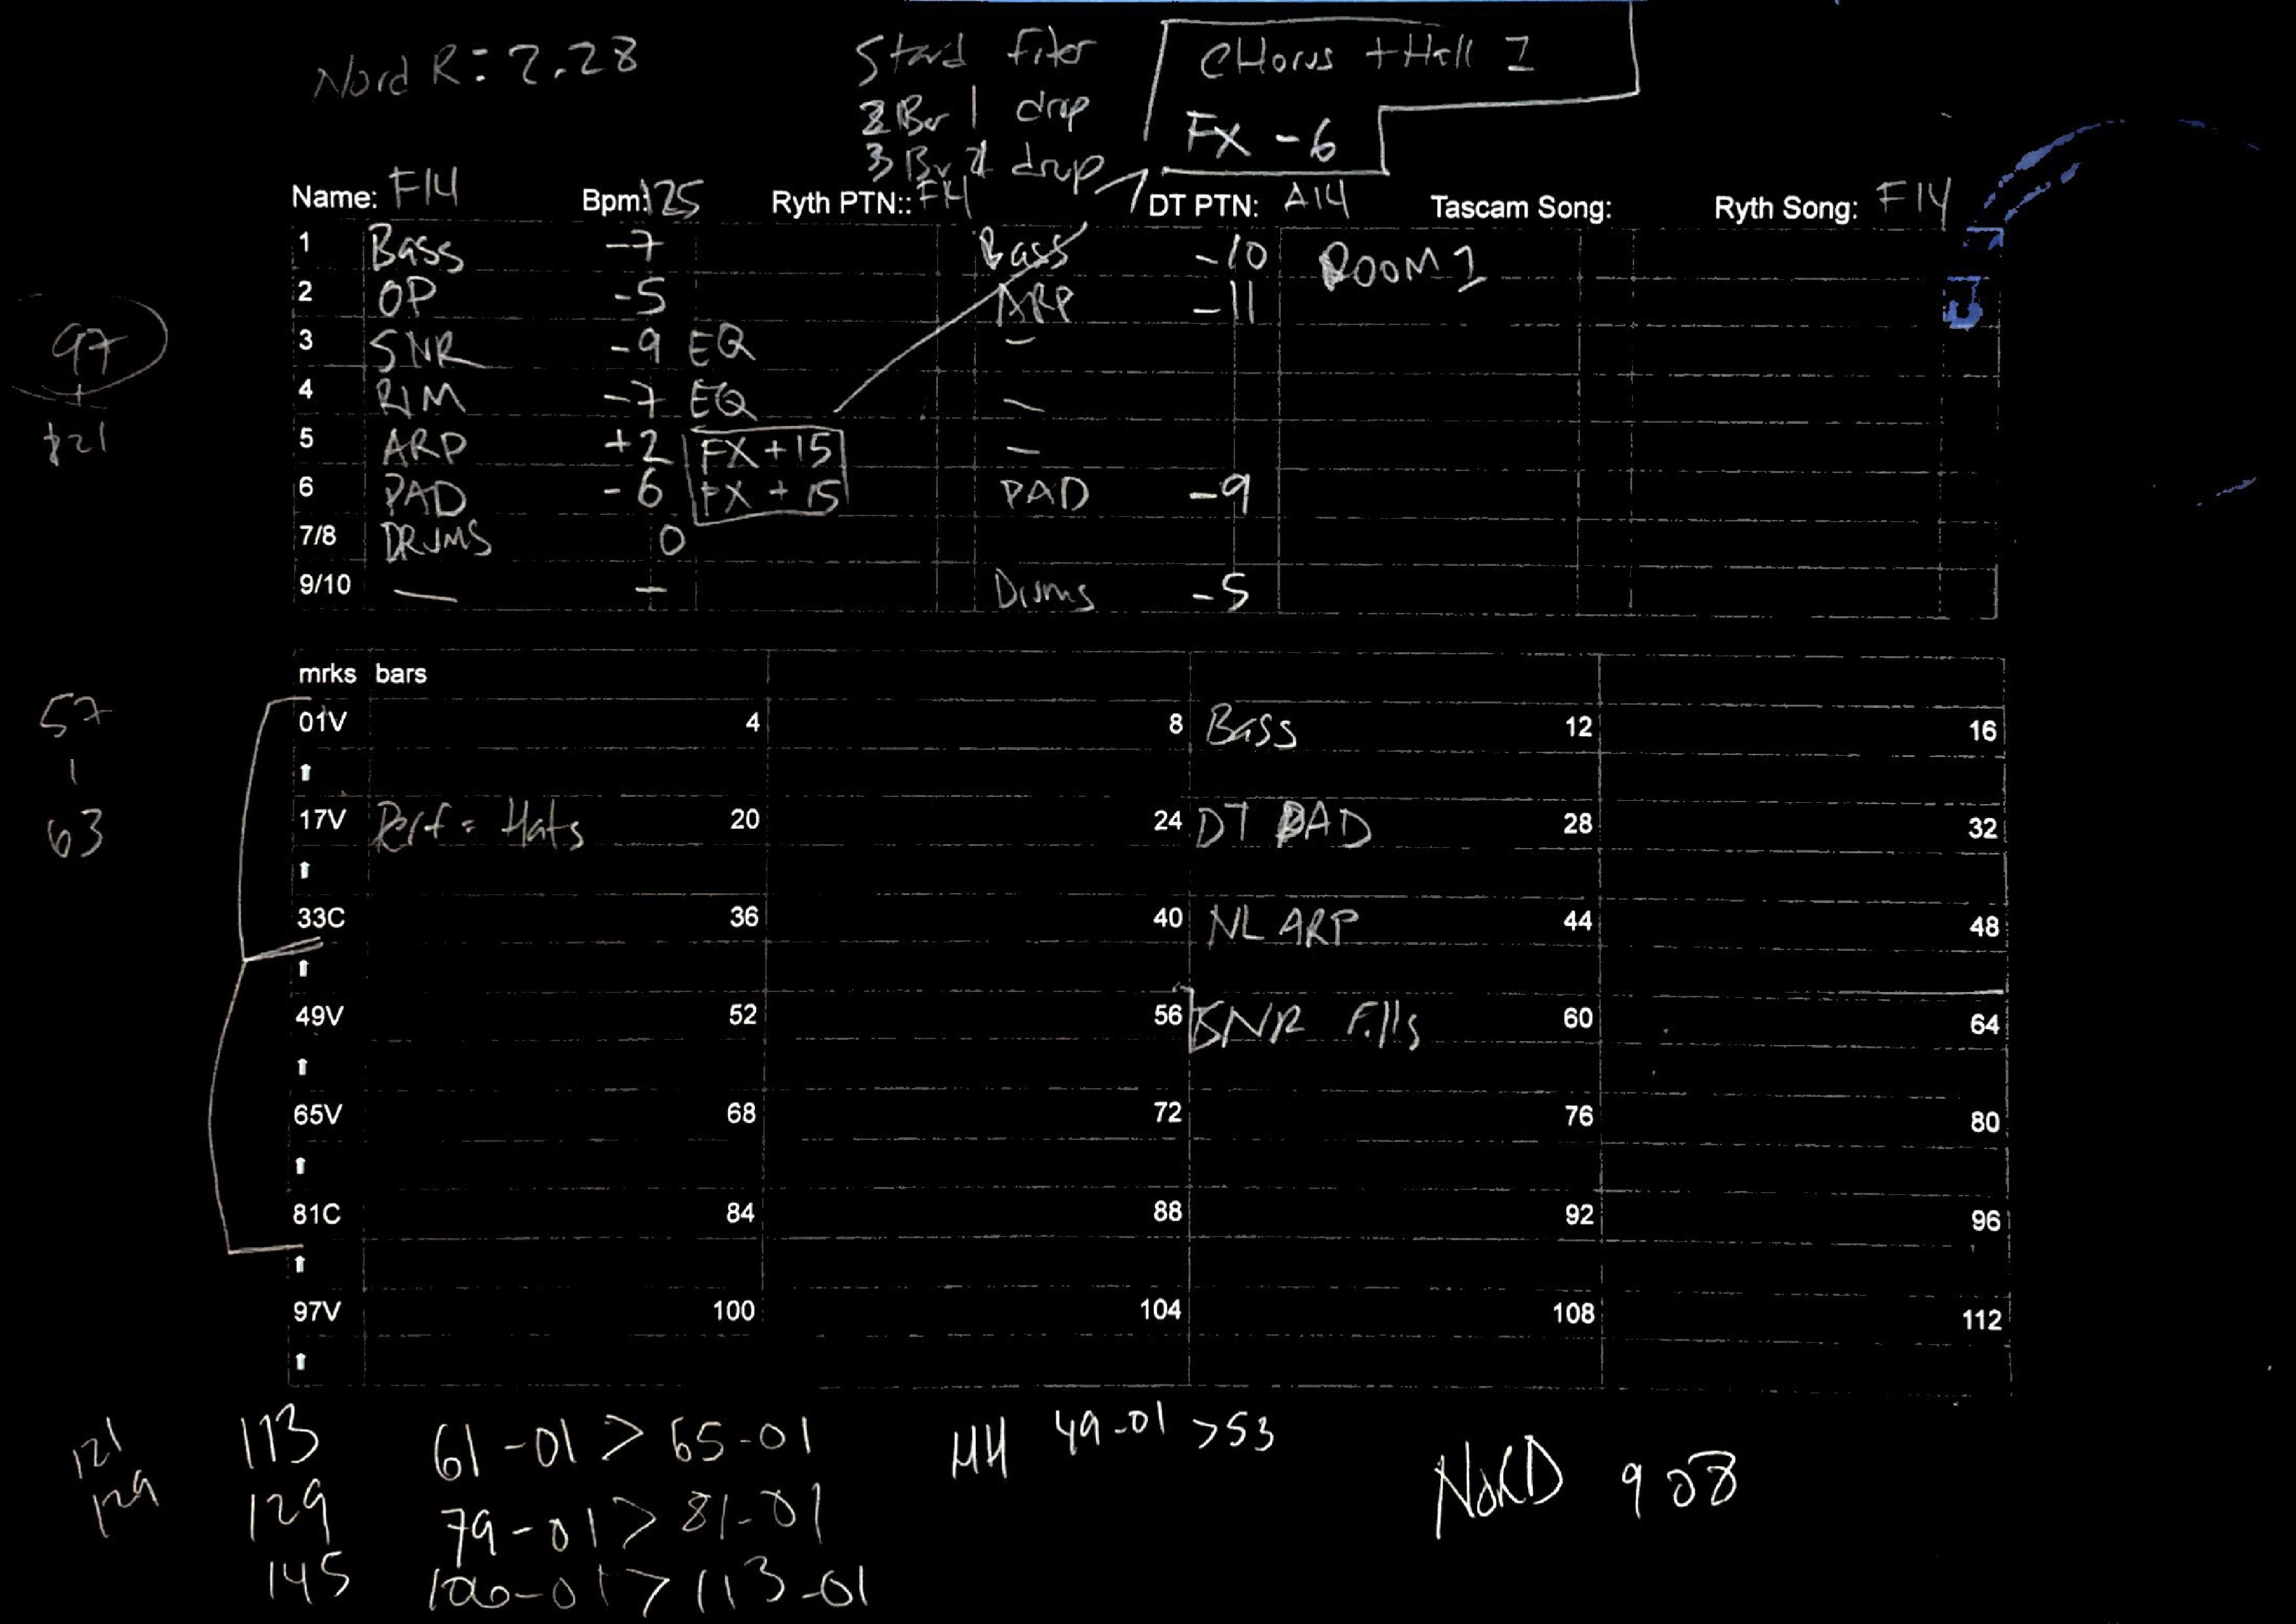 Nord R: 2.28
Start Filter
2 Bar 1 drop
3 Bar 2 drop
CHorus + Hall 1
FX -6
Name: F14 Bpm: 125 Ryth PTN:: F14 DT PTN: A14 Tascam Song: Ryth Song: F14
1 Bass -7 Bass -10 ROOM 1
2 OP -5 ARP -11
3 SNR -9 EQ -
4 RIM -7 EQ -
5 ARP +2 FX +15 -
6 PAD -6 FX +15 PAD -9
7/8 DRUMS 0
9/10 — - Drums -5
97
121
mrks bars
01V 4 8 Bass 12 16
⬆
17V Perf = Hats 20 24 DT PAD 28 32
⬆
33C 36 40 NL ARP 44 48
⬆
49V 52 56 SNR Fills 60 64
⬆
65V 68 72 76 80
⬆
81C 84 88 92 96
⬆
97V 100 104 108 112
⬆
57
1
63
121
129
113 61-01 > 65-01 HH 49-01 > 53
129 79-01 > 81-01 NORD 908
145 > 113-01